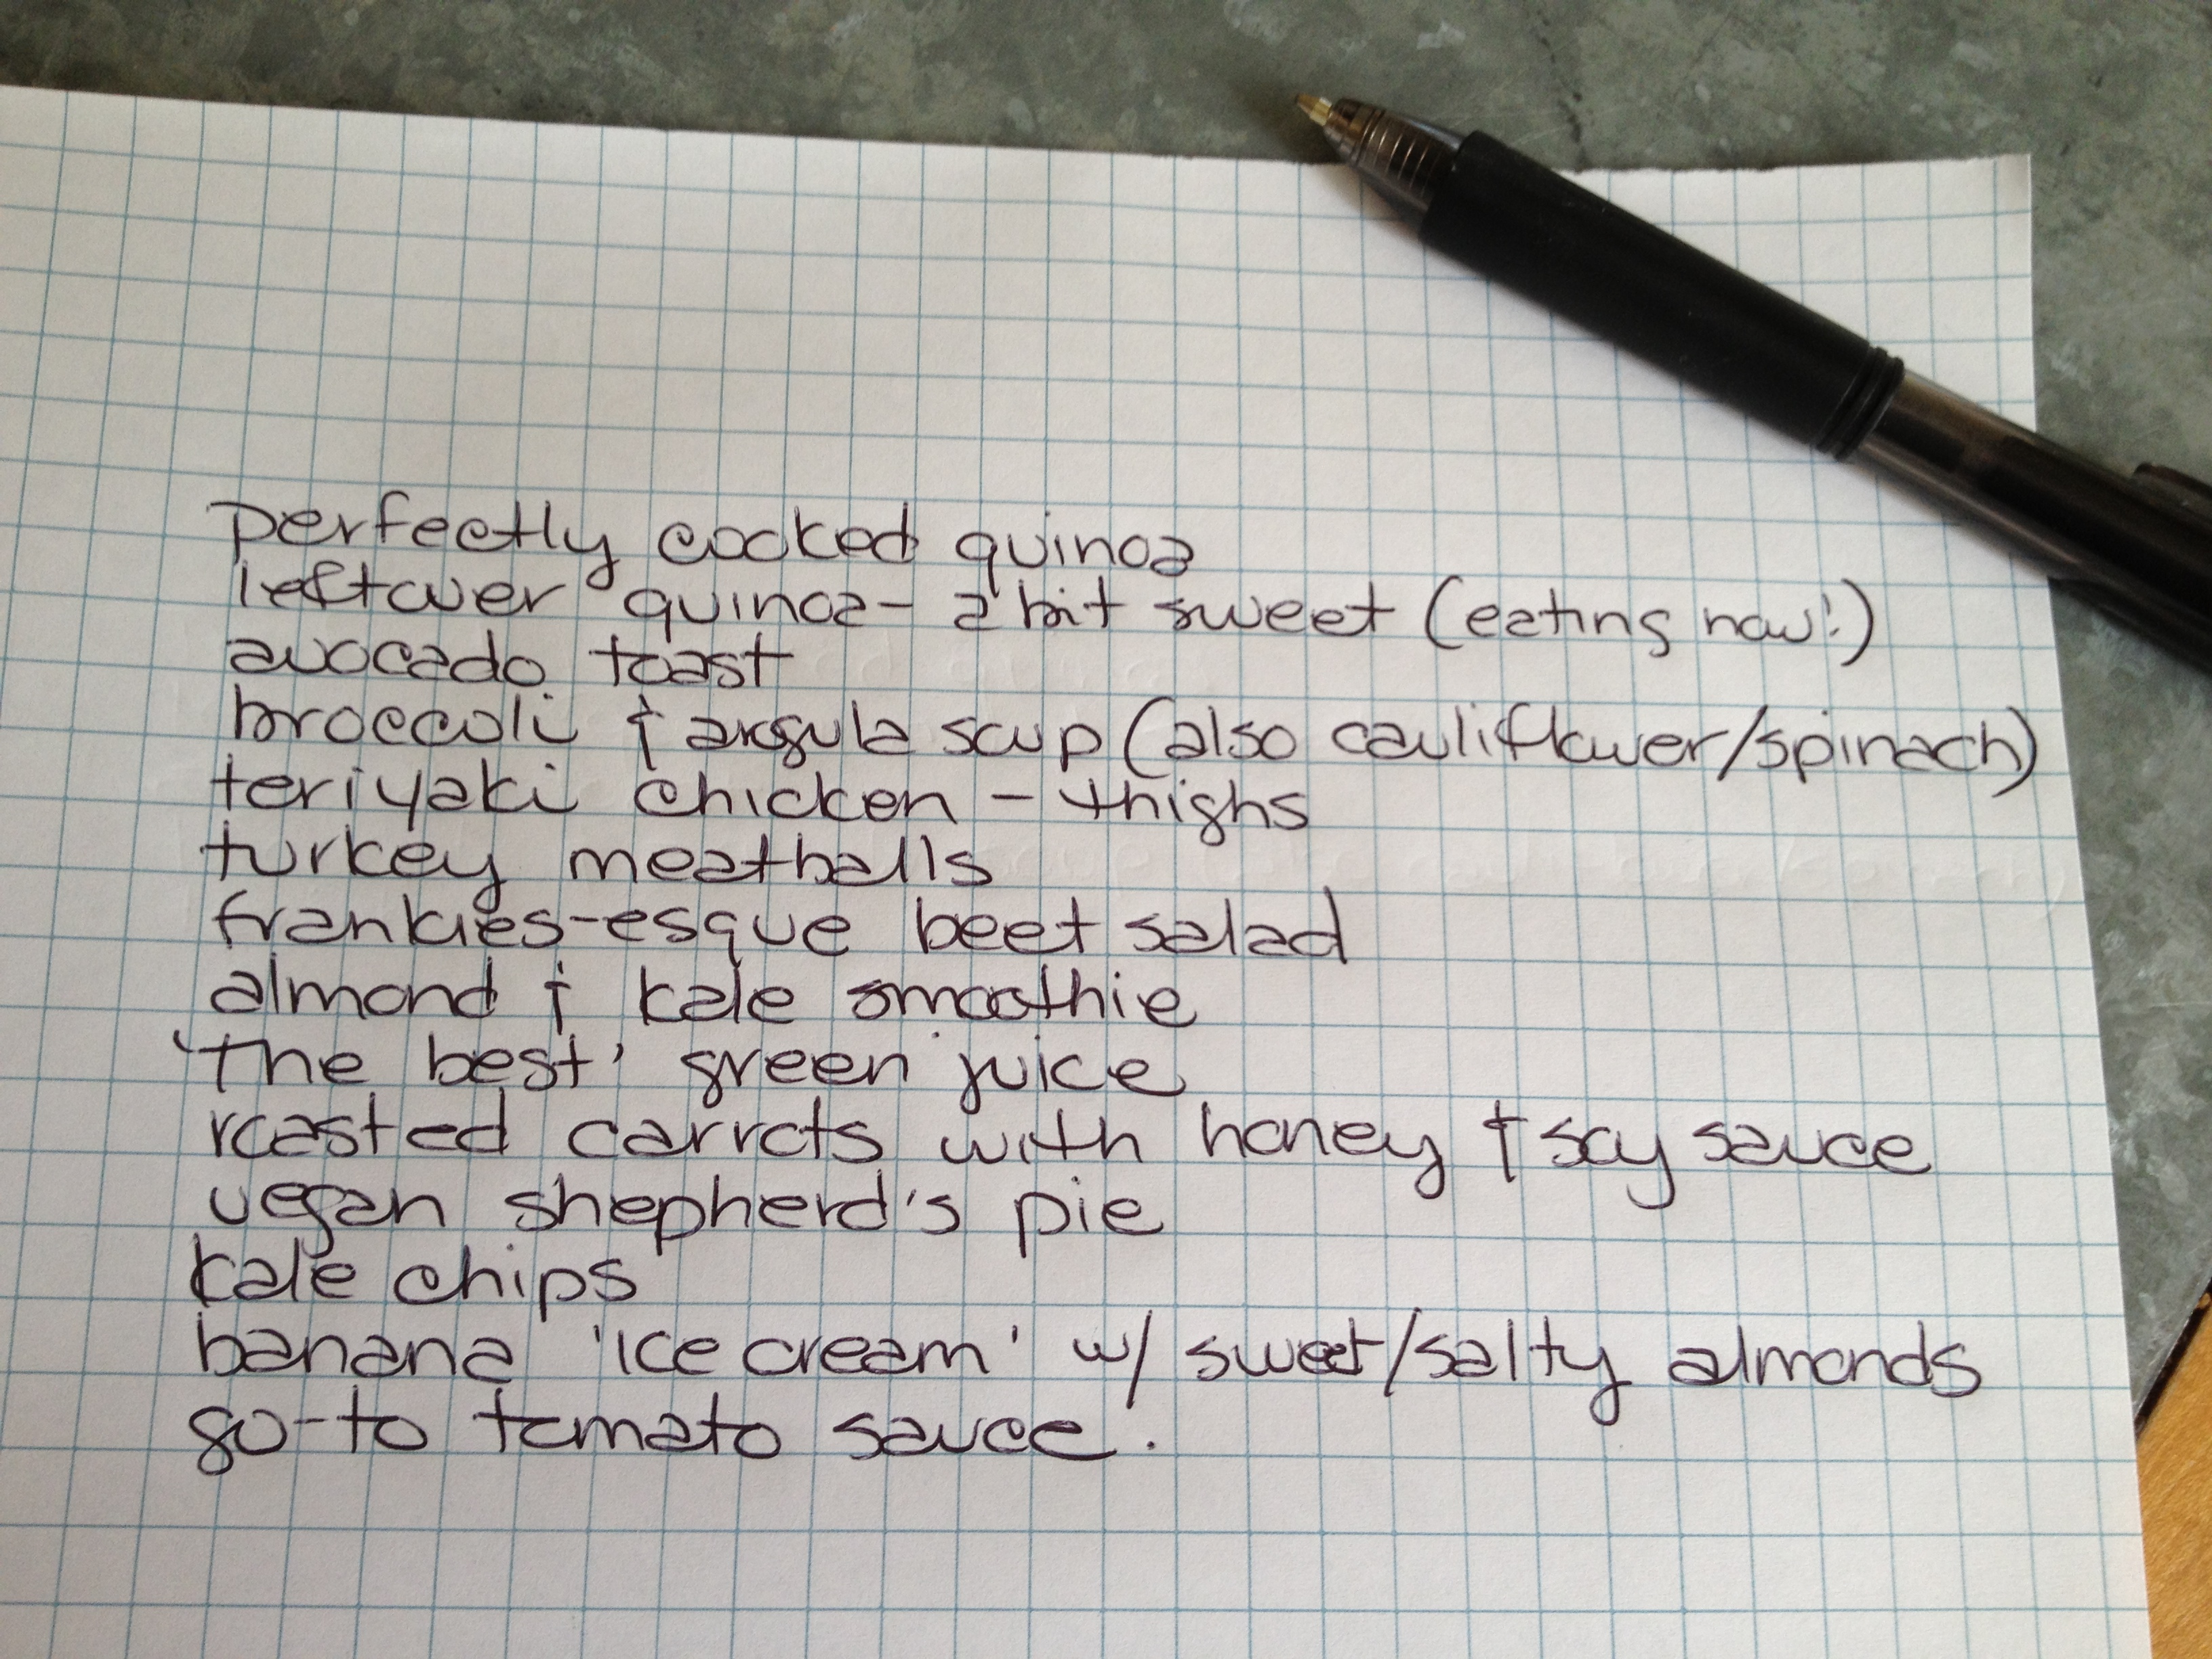 perfectly cooked quinoa
leftover quinoa- a bit sweet (eating now!)
avocado toast
broccoli & arugula soup (also cauliflower/spinach)
teriyaki chicken - thighs
turkey meatballs
frankies-esque beet salad
almond & kale smoothie
'the best' green juice
roasted carrots with honey & soy sauce
vegan shepherd's pie
kale chips
banana 'ice cream' w/ sweet/salty almonds
go-to tomato sauce.